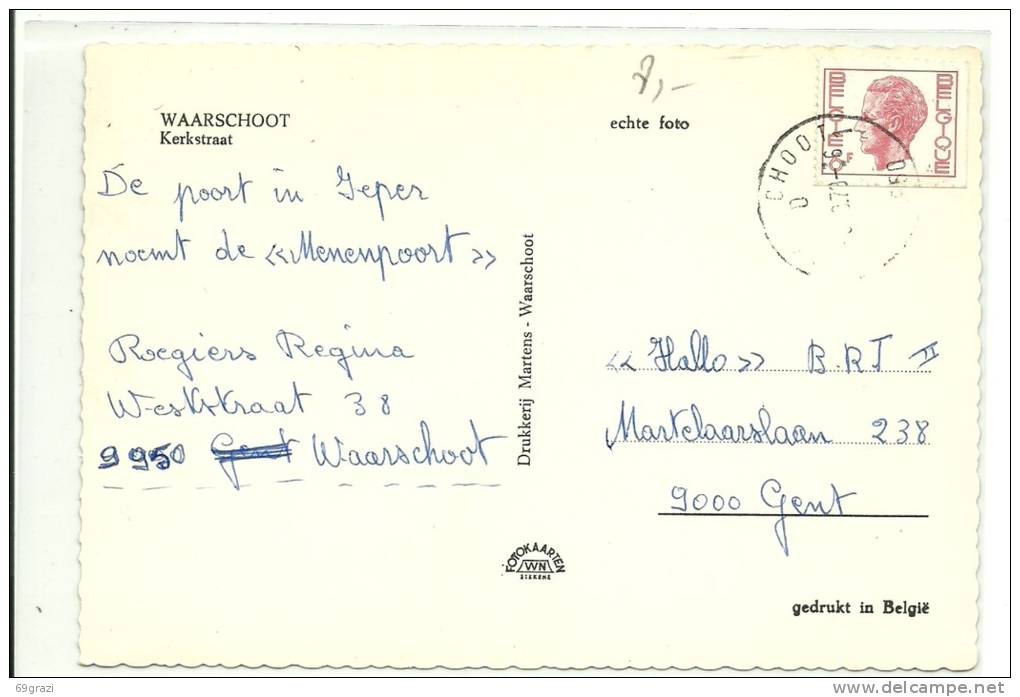 8,-
WAARSCHOOT
Kerkstraat
echte foto
BELGIE
BELGIQUE
F
CHOOT
De poort in Ieper
noemt de «Menenpoort»
Roegiers Regina
Weststraat 38
9950 Gent Waarschoot
Drukkerij Martens - Waarschoot
«Hallo» B.R.T II
Martelaarslaan 238
9000 Gent
FOTOKAARTEN
STEKENE
gedrukt in België
69grazi
www.delcampe.net